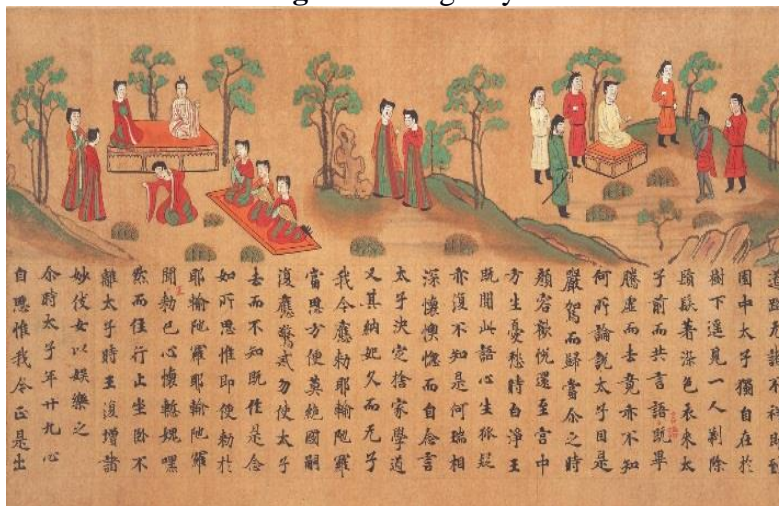 園中太子獨自在於
樹下遥見一人剃除
鬚髮著染色衣來太
子前而共言語既畢
騰虛而去竟亦不知
何所論說太子因是
嚴駕而歸當尒之時
顏容歡悅還至宮中
方生憂愁時白淨王
既聞此語心生狐疑
亦復不知是何瑞相
深懷懊惱而自念言
太子決定捨家學道
又其納妃久而无子
我今應勑耶輸陁羅
當思方便莫絶國嗣
復應警戒勿使太子
去而不知既作是念
如所思惟即便勑於
耶輸陁羅耶輸陁羅
聞勑已心懷慙媿嘿
然而住行止坐卧不
離太子時王復增諸
妙伎女以娛樂之
尒時太子年廿九心
自思惟我今正是出